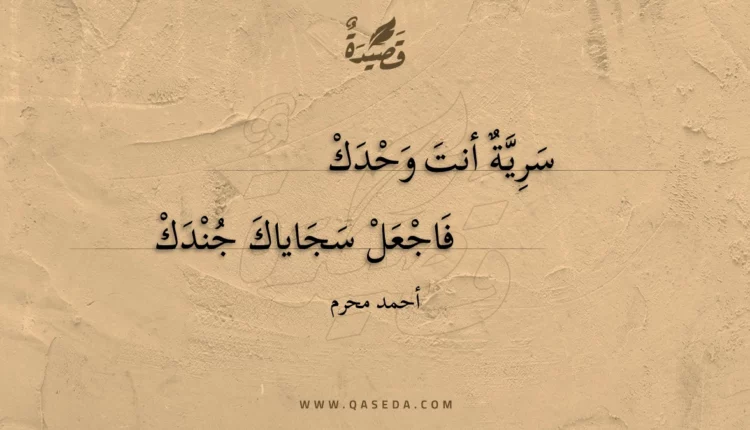 قَصِيدَةٌ
سَرِيَّةٌ أنتَ وَحْدَكْ
فَاجْعَلْ سَجَاياكَ جُنْدَكْ
أحمد محرم
WWW.QASEDA.COM